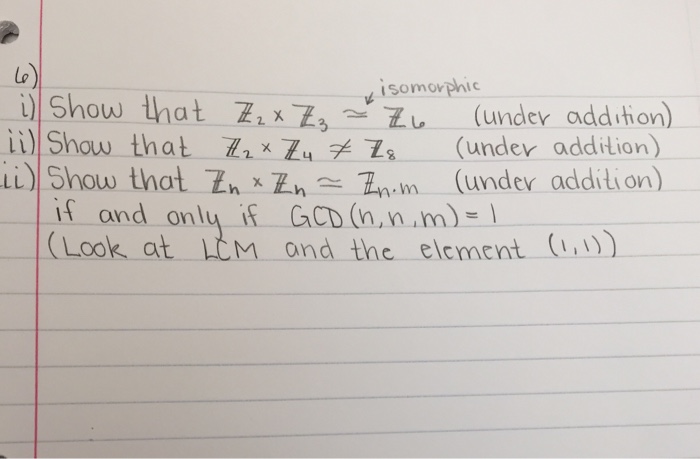 6)
isomorphic
i) Show that ℤ₂ × ℤ₃ ≃ ℤ₆ (under addition)
ii) Show that ℤ₂ × ℤ₄ ≠ ℤ₈ (under addition)
ii) Show that ℤₙ × ℤₙ ≃ ℤₙ.ₘ (under addition)
if and only if GCD(n,n,m) = 1
(Look at LCM and the element (1,1))